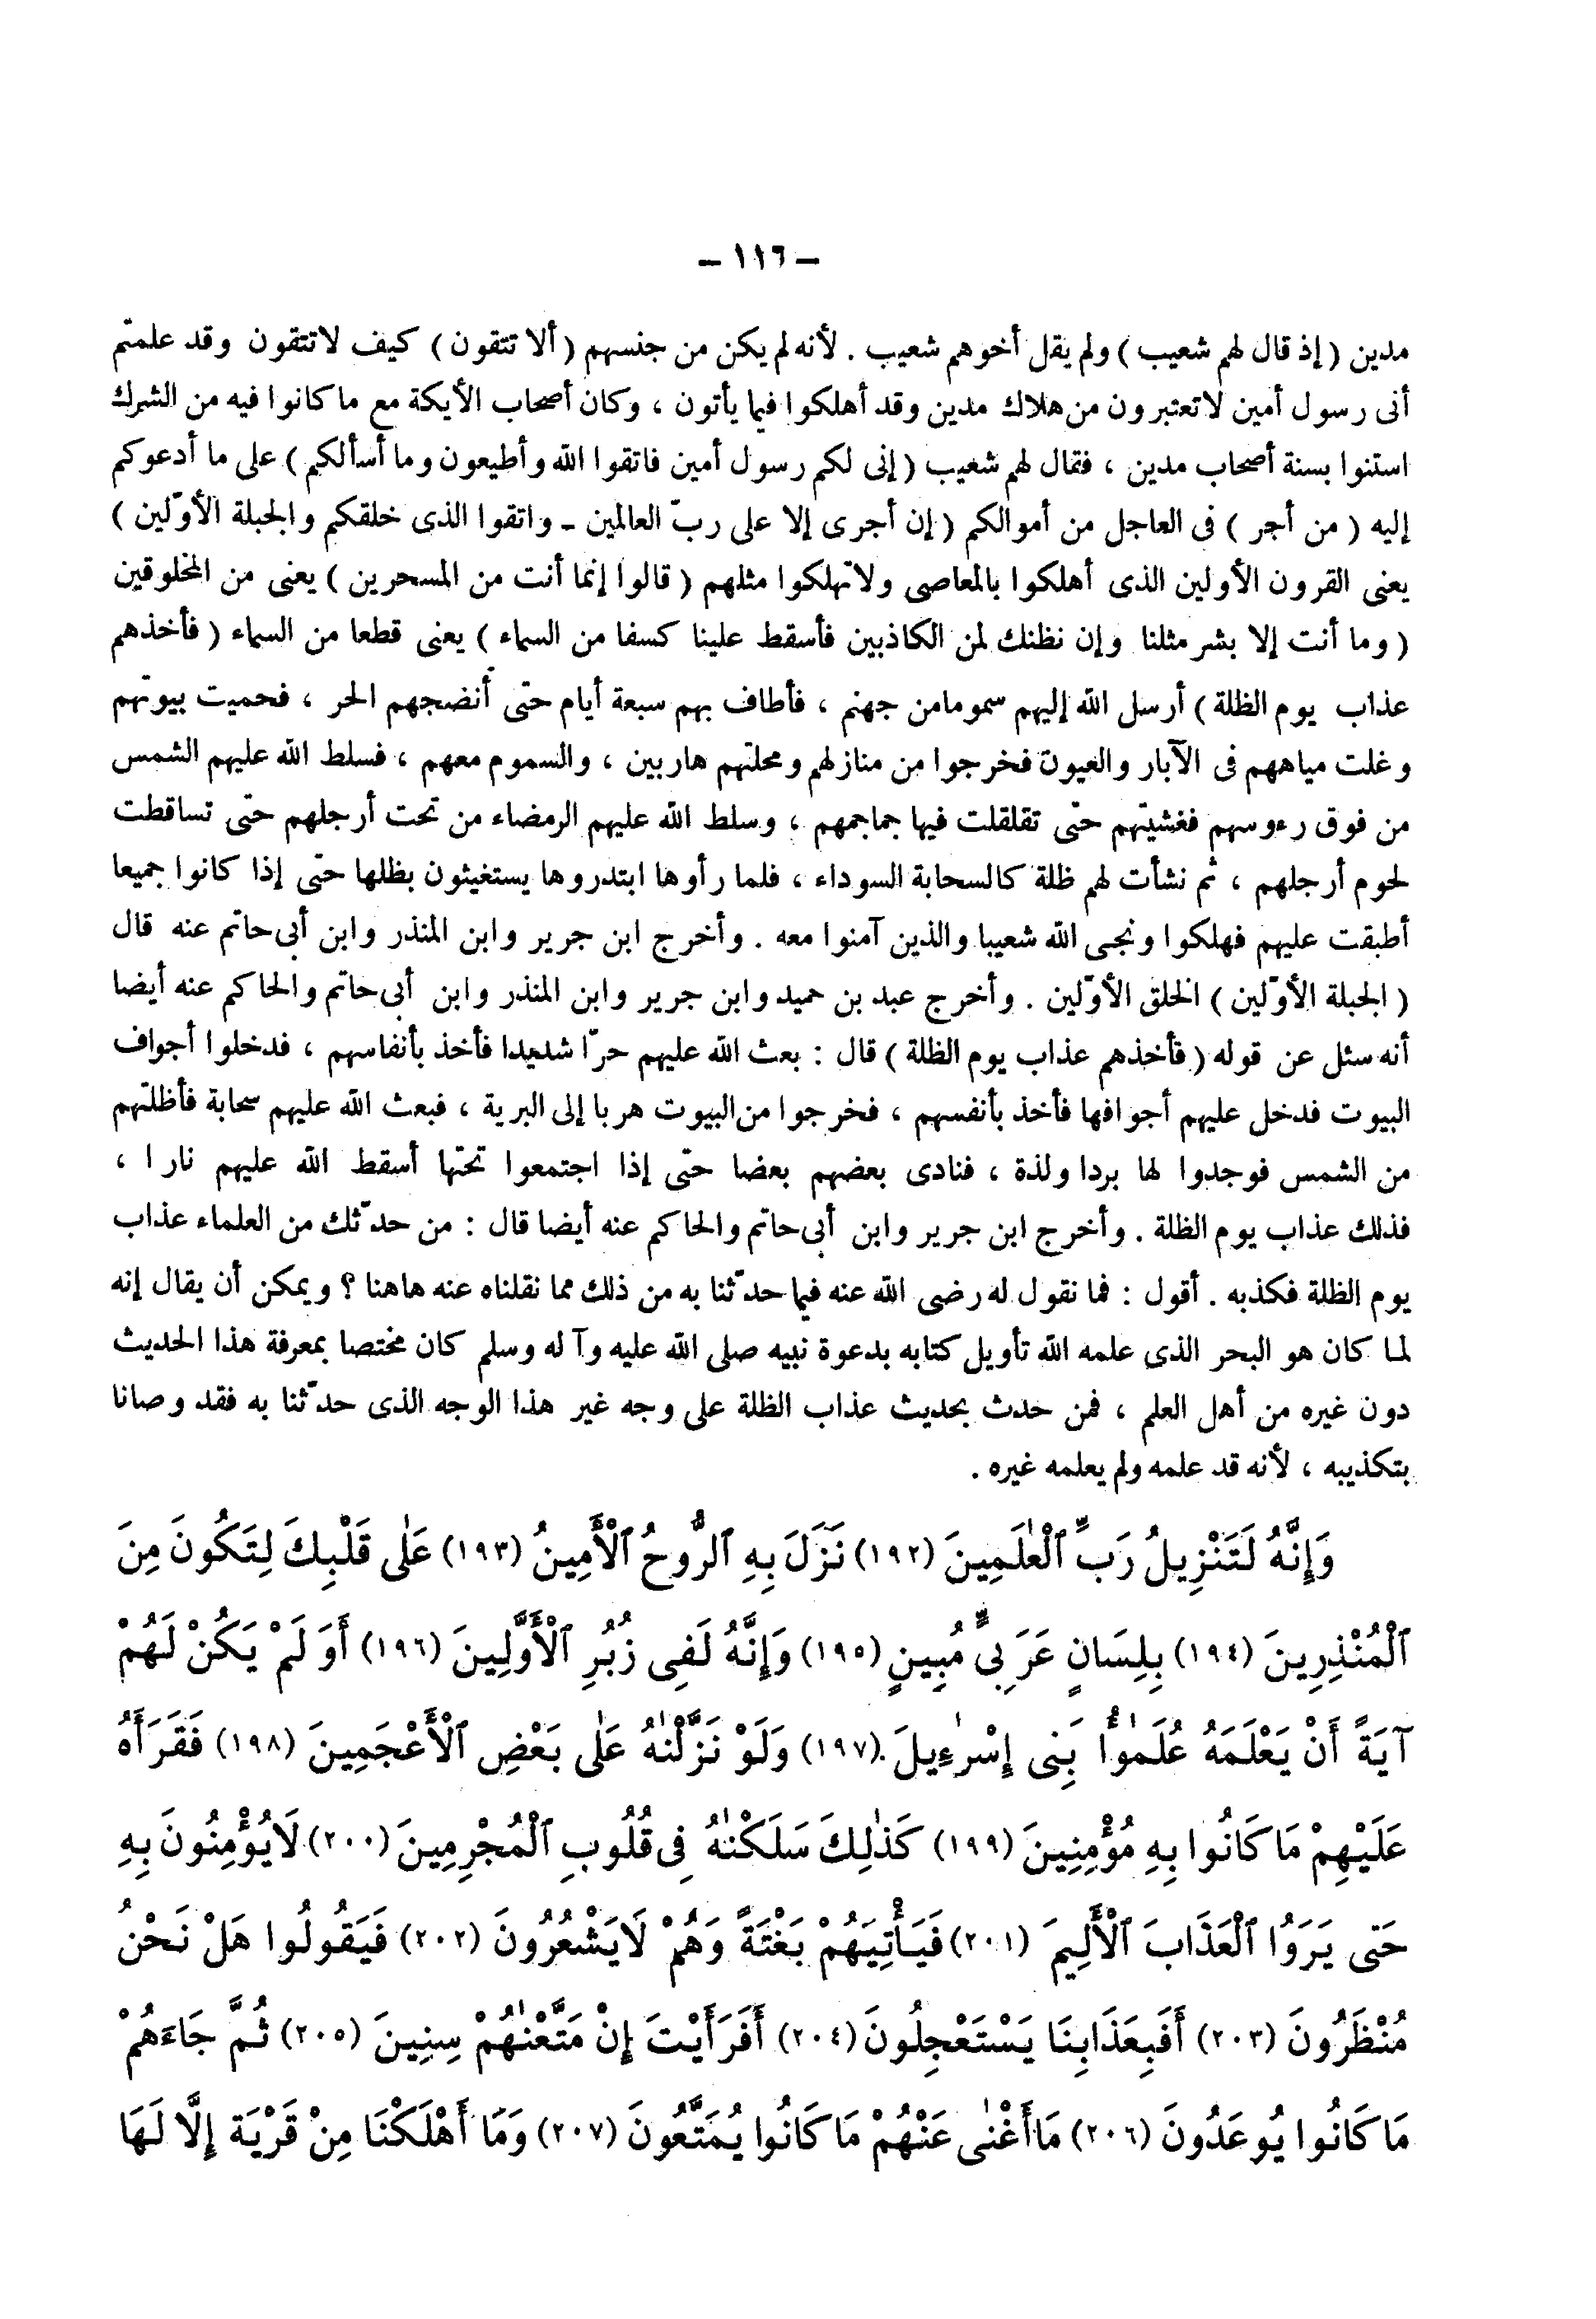 – ١١٦ –
مدين ( إذ قال لهم شعيب ) ولم يقل أخوهم شعيب . لأنه لم يكن من جنسهم ( ألا تتقون ) كيف لاتتقون وقد علمتم
أنى رسول أمين لاتعتبرون من هلاك مدين وقد أهلكوا فيما يأتون ، وكان أصحاب الأيكة مع ما كانوا فيه من الشرك
استنوا بسنة أصحاب مدين ، فقال لهم شعيب ( إنى لكم رسول أمين فاتقوا الله وأطيعون وما أسألكم ) على ما أدعوكم
إليه ( من أجر ) فى العاجل من أموالكم ( إن أجرى إلا على ربّ العالمين ـ واتقوا الذى خلقكم والجبلة الأوّلين )
يعنى القرون الأولين الذى أهلكوا بالمعاصى ولاتهلكوا مثلهم ( قالوا إنما أنت من المسحرين ) يعنى من المخلوقين
( وما أنت إلا بشر مثلنا وإن نظنك لمن الكاذبين فأسقط علينا كسفا من السماء ) يعنى قطعا من السماء ( فأخذهم
عذاب يوم الظلة ) أرسل الله إليهم سموما من جهنم ، فأطاف بهم سبعة أيام حتى أنضجهم الحر ، فحميت بيوتهم
وغلت مياههم فى الآبار والعيون فخرجوا من منازلهم ومحلتهم هاربين ، والسموم معهم ، فسلط الله عليهم الشمس
من فوق رءوسهم فغشيتهم حتى تقلقلت فيها جماجمهم ، وسلط الله عليهم الرمضاء من تحت أرجلهم حتى تساقطت
لحوم أرجلهم ، ثم نشأت لهم ظلة كالسحابة السوداء ، فلما رأوها ابتدروها يستغيثون بظلها حتى إذا كانوا جميعا
أطبقت عليهم فهلكوا ونجى الله شعيبا والذين آمنوا معه . وأخرج ابن جرير وابن المنذر وابن أبى حاتم عنه قال
( الجبلة الأوّلين ) الخلق الأوّلين . وأخرج عبد بن حميد وابن جرير وابن المنذر وابن أبى حاتم والحاكم عنه أيضا
أنه سئل عن قوله ( فأخذهم عذاب يوم الظلة ) قال : بعث الله عليهم حرّا شديدا فأخذ بأنفاسهم ، فدخلوا أجواف
البيوت فدخل عليهم أجوافها فأخذ بأنفسهم ، فخرجوا من البيوت هربا إلى البرية ، فبعث الله عليهم سحابة فأظلتهم
من الشمس فوجدوا لها بردا ولذة ، فنادى بعضهم بعضا حتى إذا اجتمعوا تحتها أسقط الله عليهم نارا ،
فذلك عذاب يوم الظلة . وأخرج ابن جرير وابن أبى حاتم والحاكم عنه أيضا قال : من حدّثك من العلماء عذاب
يوم الظلة فكذبه . أقول : فما نقول له رضى الله عنه فيما حدّثنا به من ذلك مما نقلناه عنه هاهنا ؟ ويمكن أن يقال إنه
لما كان هو البحر الذى علمه الله تأويل كتابه بدعوة نبيه صلى الله عليه وآ له وسلم كان مختصا بمعرفة هذا الحديث
دون غيره من أهل العلم ، فمن حدث بحديث عذاب الظلة على وجه غير هذا الوجه الذى حدّثنا به فقد وصانا
بتكذيبه ، لأنه قد علمه ولم يعلمه غيره .
وَإِنَّهُ لَتَنْزِيلُ رَبِّ ٱلْعٰلَمِينَ (١٩٢) نَزَلَ بِهِ ٱلرُّوحُ ٱلْأَمِينُ (١٩٣) عَلٰى قَلْبِكَ لِتَكُونَ مِنَ
ٱلْمُنْذِرِينَ (١٩٤) بِلِسَانٍ عَرَبِىٍّ مُبِينٍ (١٩٥) وَإِنَّهُ لَفِى زُبُرِ ٱلْأَوَّلِينَ (١٩٦) أَوَ لَمْ يَكُنْ لَهُمْ
آيَةً أَنْ يَعْلَمَهُ عُلَمٰوٴُا بَنِى إِسْرٰءِيلَ (١٩٧) وَلَوْ نَزَّلْنٰهُ عَلٰى بَعْضِ ٱلْأَعْجَمِينَ (١٩٨) فَقَرَأَهُ
عَلَيْهِمْ مَا كَانُوا بِهِ مُؤْمِنِينَ (١٩٩) كَذٰلِكَ سَلَكْنٰهُ فِى قُلُوبِ ٱلْمُجْرِمِينَ (٢٠٠) لَايُؤْمِنُونَ بِهِ
حَتّٰى يَرَوُا ٱلْعَذَابَ ٱلْأَلِيمَ (٢٠١) فَيَأْتِيَهُمْ بَغْتَةً وَهُمْ لَايَشْعُرُونَ (٢٠٢) فَيَقُولُوا هَلْ نَحْنُ
مُنْظَرُونَ (٢٠٣) أَفَبِعَذَابِنَا يَسْتَعْجِلُونَ (٢٠٤) أَفَرَأَيْتَ إِنْ مَتَّعْنٰهُمْ سِنِينَ (٢٠٥) ثُمَّ جَاءَهُمْ
مَا كَانُوا يُوعَدُونَ (٢٠٦) مَا أَغْنٰى عَنْهُمْ مَا كَانُوا يُمَتَّعُونَ (٢٠٧) وَمَا أَهْلَكْنَا مِنْ قَرْيَة إِلَّا لَهَا